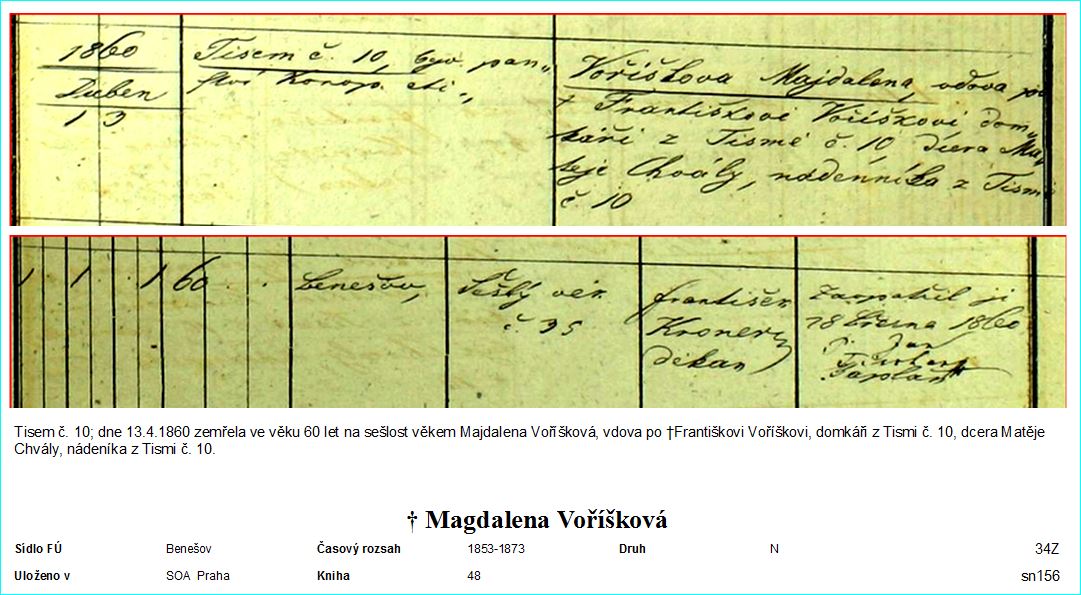 1860
Duben
13
Tisem č. 10, byv. pan„
ství Konop. šti„
Voříškova Majdalena, vdova po
† Františkovi Voříškovi dom„
káři z Tismě č. 10 dcera Ma„
těje Chvály, nádenníka z Tismi
č 10
1 1 1 60
Benešov,
Sešlý věk
č 95
František
Kroner
děkan
Zaopatřil ji
března 1860
P. Jan
kaplan
Tisem č. 10; dne 13.4.1860 zemřela ve věku 60 let na sešlost věkem Majdalena Voříšková, vdova po †Františkovi Voříškovi, domkáři z Tismi č. 10, dcera Matěje
Chvály, nádeníka z Tismi č. 10.
† Magdalena Voříšková
Sídlo FÚ Benešov Časový rozsah 1853-1873 Druh N 34Z
Uloženo v SOA Praha Kniha 48 sn156